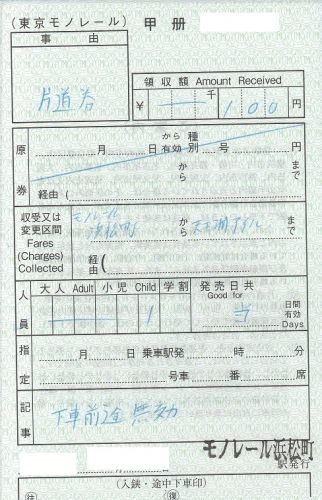 (東京モノレール) 甲 册
事由
片道券
領収額 Amount Received
￥ 千 100 円
原券
月 日 から有効 種別 号 円
から まで
経由 (
収受又は変更区間 Fares (Charges) Collected
モノレール浜松町 から 天王洲アイル まで
経由 (
人員
大人 Adult 小児 Child 学割 発売日共 Good for
1 当 日間有効 Days
指定
月 日 乗車駅発 時 分
号車 番 席
記事
下車前途無効
モノレール浜松町
駅発行
(入鋏・途中下車印)
注 復